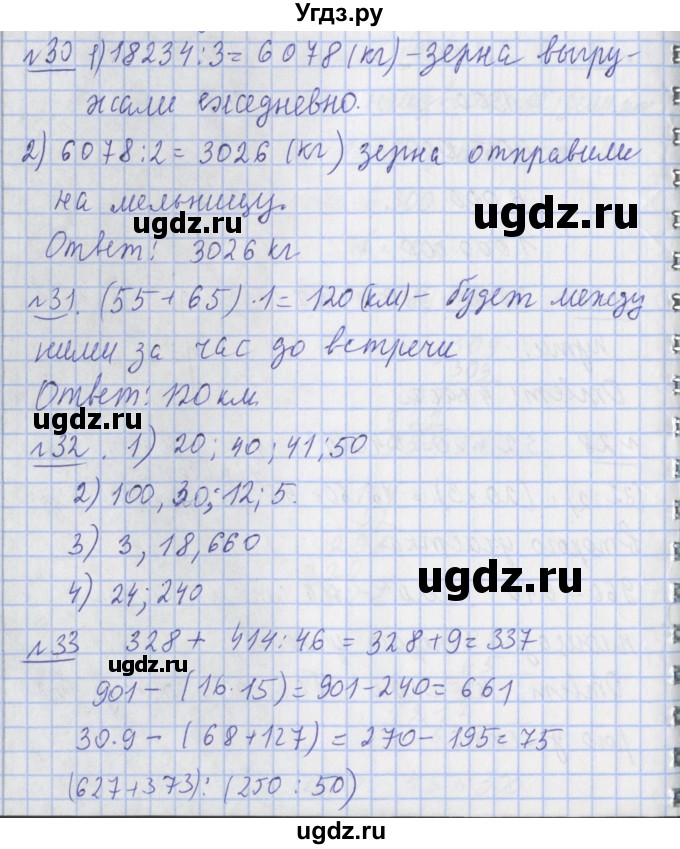 Угдз.ру
№30 1) 18234:3 = 6078 (кг) – зерна выгру-
жали ежедневно.
2) 6078:2 = 3026 (кг) зерна отправили
на мельницу.
ugdz.ru
ugdz.ru
Ответ: 3026 кг
№31. (55+65)·1 = 120 (км) – будет между
ними за час до встречи
Ответ: 120 км.
ugdz.ru
№32. 1) 20; 40; 41; 50
2) 100, 30; 12; 5.
3) 3, 18, 660
4) 24; 240
ugdz.ru
№33 328 + 414:46 = 328+9 = 337
ugdz.ru
901 – (16·15) = 901-240 = 661
30·9 – (68+127) = 270 – 195 = 75
(627+373):(250:50)
ugdz.ru